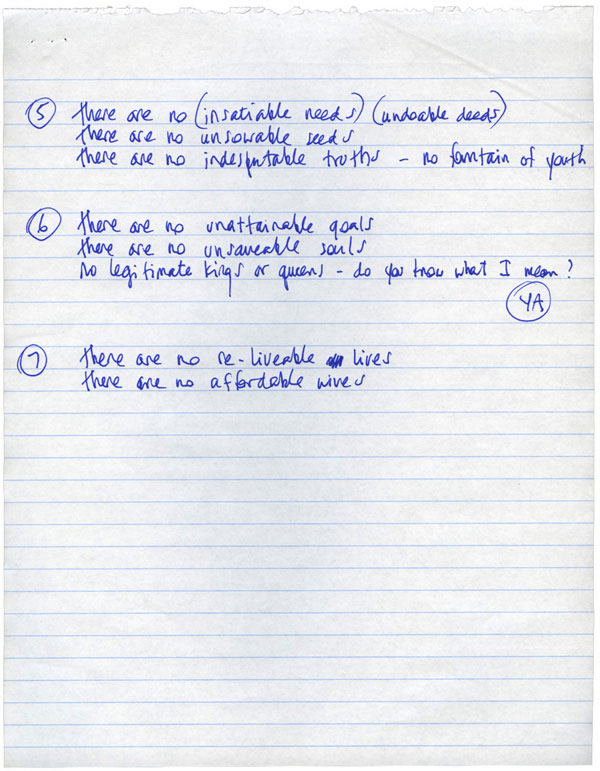 5 there are no (insatiable needs) (undoable deeds)
there are no unsowable seeds
there are no indesputable truths - no fountain of youth
6 there are no unattainable goals
there are no unsaveable souls
No legitimate kings or queens - do you know what I mean?
YA
7 there are no re-liveable lives
there are no affordable wives